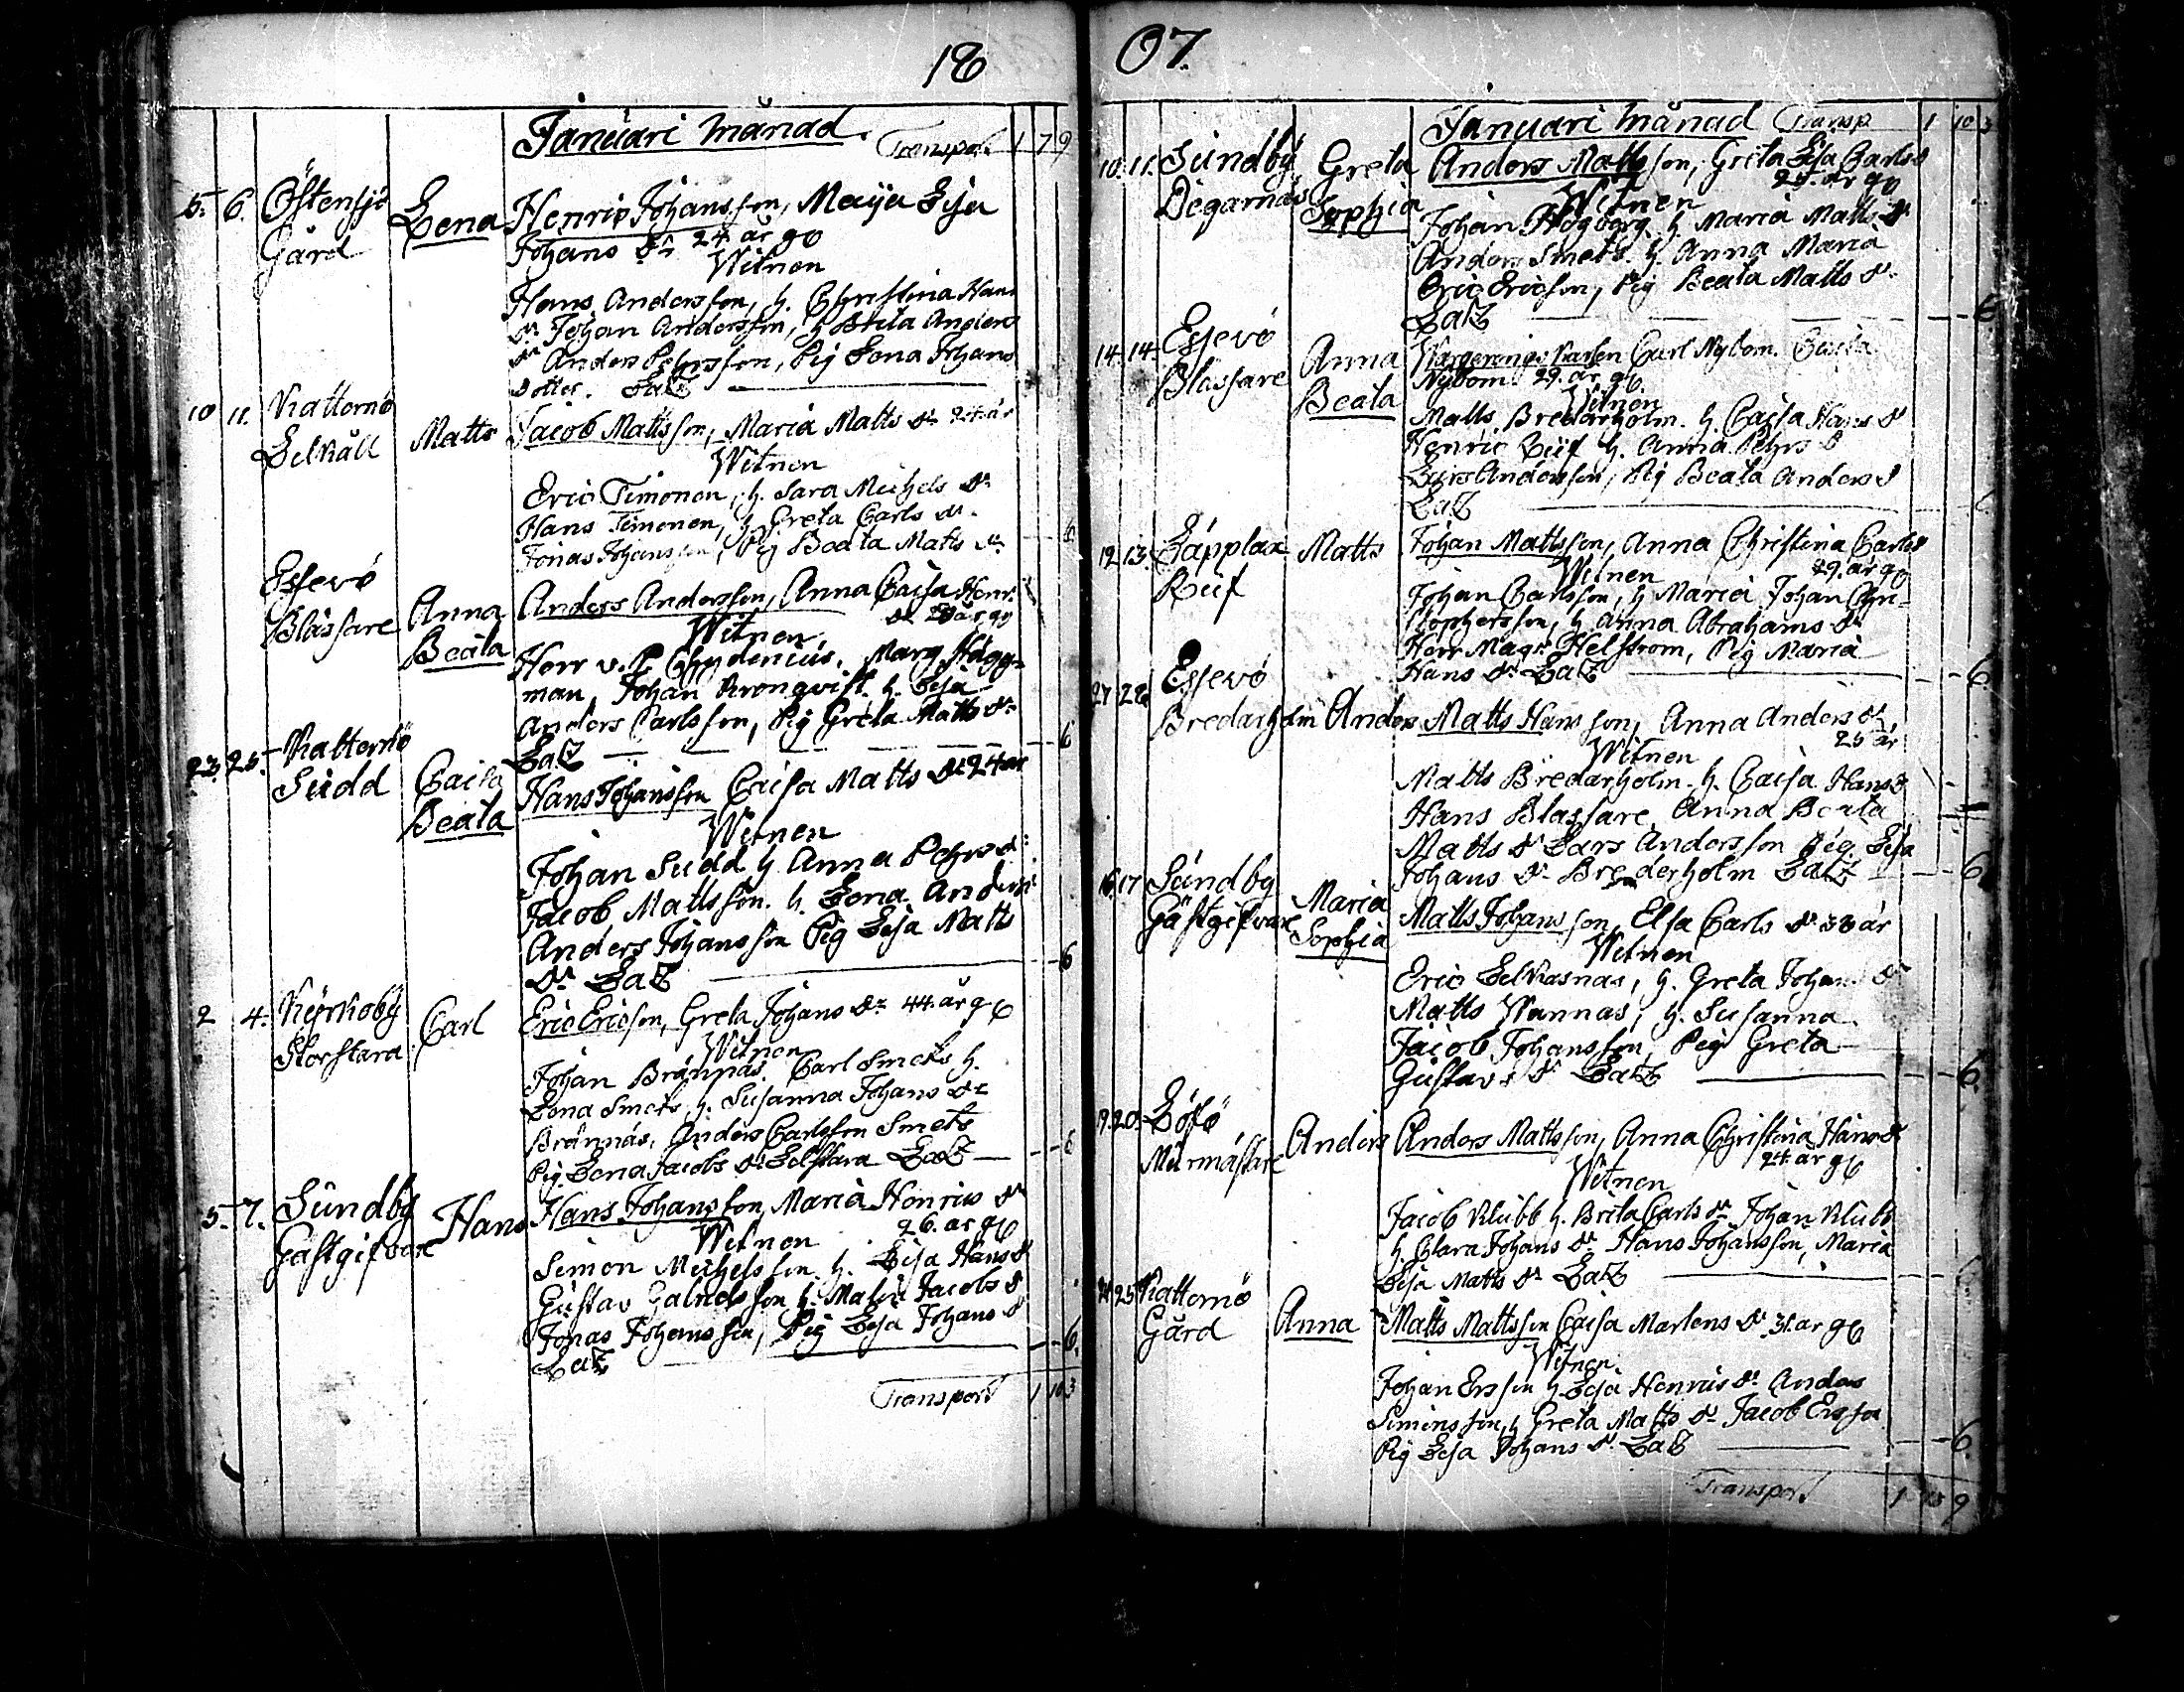 18
Januari månad. Transport 1 7 9
5. 6. Östensjö Gård Lena Henric Johansson, Maija Lisa
Johans dr 24 år g6
Witnen
Hans Andersson, h. Christina Hans
dr Johan Andersson, h Brita Anders
dr Anders Pehrsson, Pig Lena Johans
dotter. LatZ
10 11. Katternö Selkäll Matts Jacob Mattsson, Maria Matts dr 24 år
Witnen
Eric Timonen, h. Sara Michels dr
Hans Timonen, h Greta Carls dr.
Jonas Johansson, Pig Beata Matts dr. 6
Essevö Blässare Anna Beata Anders Andersson, Anna Caisa Henr.
dr år g6
Witnen
Herr v. P. Chydenius, Marg Hägg=
man, Johan Kronqvist h. Lisa
Anders Carlsson, Pig Greta Matts dr
LatZ 6
23. 25. Katternö Sudd Caisa Beata Hans Johansson Caisa Matts dr 24 år
Witnen
Johan Sudd h Anna Pehrs dr
Jacob Mattsson. h. Lena Anders
Anders Johansson Pig Lisa Matts
dr LatZ 6
2 4. Kyrkoby Storstara Carl Eric Ericson, Greta Johans dr 44. år g6
Witnen
Johan Brännäs. Carl Smets h.
Lena Smets, h. Susanna Johans dr
Brännäs, Anders Carlsson Smets
Pig. Lena Jacobs dr LatZ 6
5. 7. Sundby Gästgifvare Hans Hans Johansson, Maria Henrics dr
26. år g6
Witnen
Simon Michelsson h. Lisa Hans d
Gustav Gabrielsson h. Malin Jacobs d
Jonas Johansson, Pig Lisa Johans d
LatZ 6.
Transport 1 10 3
07.
Januari månad Transp 1 10 3
10. 11. Sundby Degarnäs Greta Sophia Anders Mattsson, Greta Lisa Carls d
25. år g6
Witnen
Johan Högberg. h Maria Matts dr
Anders Smets. h. Anna Maria
Eric Ericson, Pig Beata Matts dr.
LatZ 6.
14. 14. Essevö Blässare Anna Beata Carl Nybom. Caisa
Nybom. 29. år g6
Witnen
Matts Bredarholm. h. Caisa Hans d
Henric Riif h. Anna Pehrs d
Lars Andersson, Pig Beata Anders d
LatZ
12. 13. Läpplax Riif Matts Johan Mattsson, Anna Christina Carls d
29. år g6
Witnen
Johan Carlsson, h Maria Johan Chri=
stophersson, h. Anna Abrahams dr
Herr Mag. Helstrom, Pig Maria
Hans dr LatZ 6.
27 28 Essevö Bredarholm Anders Matts Hansson, Anna Anders dr,
25 år
Witnen
Matts Bredarholm. h. Caisa Hans d
Hans Blässare Anna Beata
Matts dr Lars Andersson Pig. Lisa
Johans dr Brederholm LatZ 6.
16. 17 Sundby Gästgifvare Maria Sophia Matts Johansson, Elsa Carls dr år
Witnen
Eric Selkasnas, h. Greta Johans dr
Matts Wannas, h. Susanna
Jacob Johansson, Pig Greta
Gustavs dr LatZ 6.
19. 20. Löfö Murmästare Anders Anders Mattsson, Anna Christina Hans d
24. år g6
Witnen
Jacob Klubb h. Brita Carls dr Johan Klubb
h. Clara Johans dr Hans Johansson, Maria
Lisa Matts dr LatZ 6
24 25 Katternö Gård Anna Matts Mattsson Caisa Martens dr 31. år g6
Witnen.
Johan Ersson h Lisa Henrics dr Anders
Simonsson, h Greta Matts dr Jacob Ersson
Pig Lisa Johans d. LatZ 6.
Transport 1 9